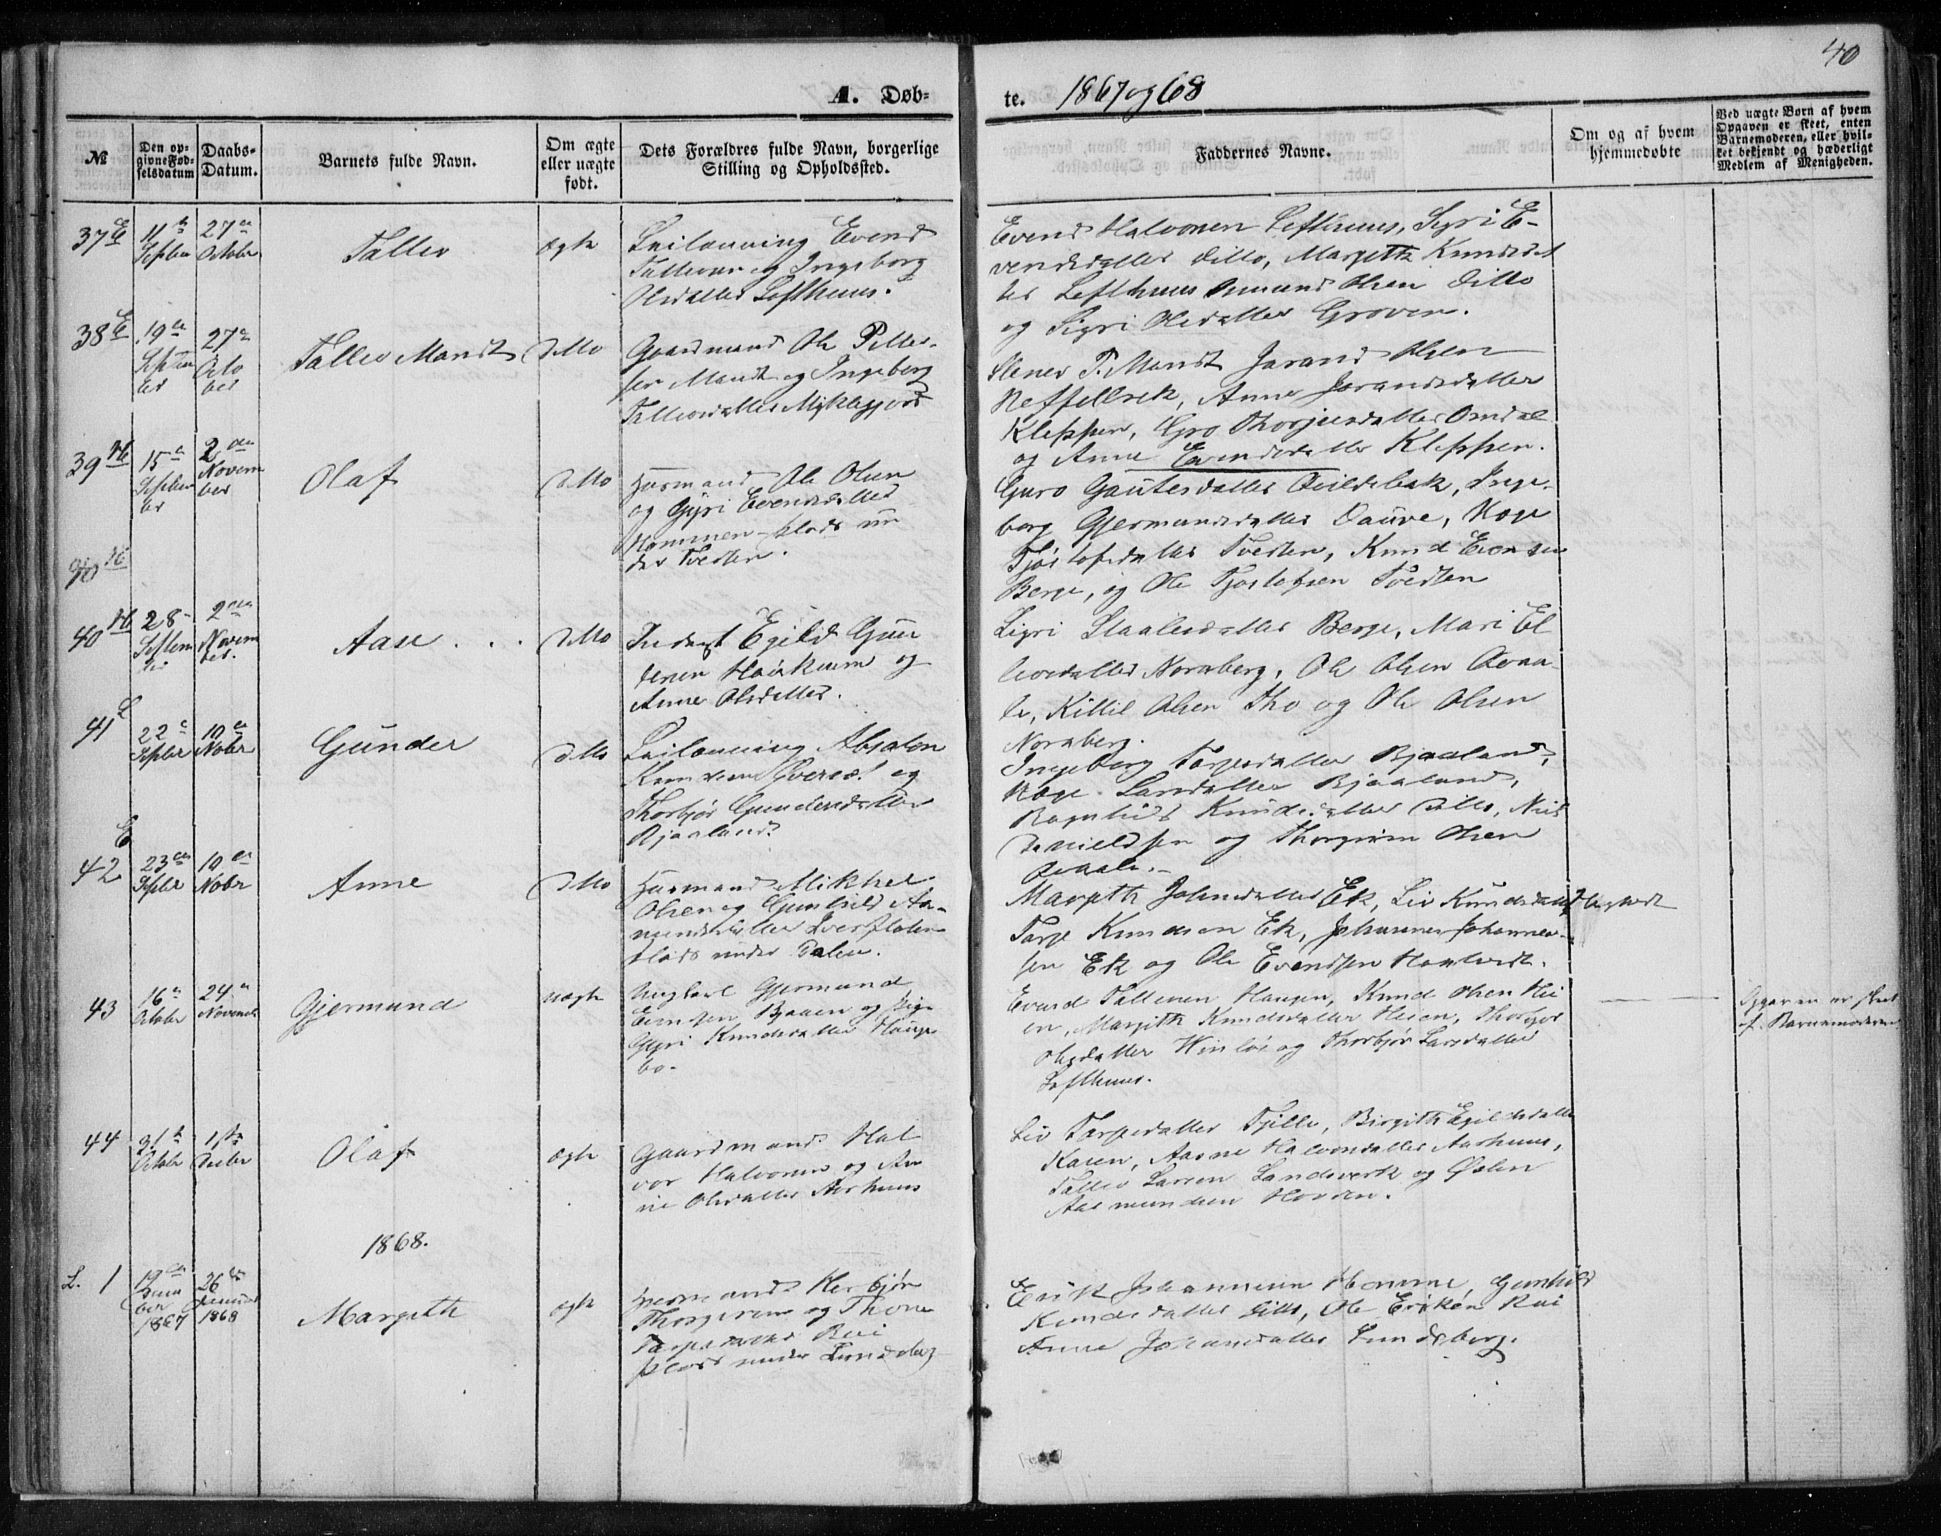 40
A. Døb-
te. 1867 og 68
№
Den op-
givne Fød-
selsdatum
Daabs-
Datum.
Barnets fulde Navn.
Om ægte
eller uægte
født.
Dets Forældres fulde Navn, borgerlige
Stilling og Opholdssted.
Faddernes Navne.
Om og af hvem
hjemmedøbte
Ved uægte Børn af hvem
Opgaven er skeet, enten
Barnemoderen, eller hvil-
ket bekjendt og hæderligt
Medlem af Menigheden.
37 E
11te
Septber
27de
Octobr
Tallev
ægte
Evend
og Ingeborg
Olsdatter Lofthuus.
Evend Halvorsen Lofthuus, Sigri E-
vendsdatter ditto, Margith Knudsdat
ter Lofthuus Omund Olsen ditto
og Sigri Olsdatter Groven.
38 E
19de
Septem
ber
27de
Octo
ber
Tallev Mandt
ditto
Gaardmand Ole
sen Mandt og Ingeborg
Tallevsdatter Myklegjord
T. Mandt Jorand Olsen
Anne Jorandsdatter
Kleppen, Gro Omdal
og Anne Evendsdatter Kleppen.
39 H
15de
Septem
ber
2den
Novem
ber
Olaf
ditto
Huusmand Ole Olsen
og Gyri Evendsdatter
Hommen-plads un
der Tvedten.
Guro Gautesdatter Inge
borg Gjermundsdatter Dauve, Hæge
Tjøstofsdatter Tvedten, Knud Evensen
Berge, og Ole Tjøstofsen Tvedten
40 H
40 H
28
Septem
ber
2den
Novem
ber.
Aase . . .
ditto
Inderst Egild Gun
dersen og
Anne Olsdatter.
Sigri Staalesdatter Berge, Mari El
levsdatter Nornberg, Ole Olsen Qvaa-
le, Kittil Olsen Tho og Ole Olsen
Nornberg.
41 L
22de
Septbr
10de
Novbr
Gunder
ditto
Absalon
Knudsen og
Thorbjør Gundersdatter
Bjaaland
Ingeborg Tarjesdatter Bjaaland,
Hæge Larsdatter Bjaaland,
Ragnhild Knudsdatter ditto, Niels
Danieldsen og Thorgrim Olsen
Qvaale.
E
42
23de
Septbr
10de
Novbr
Anne
ditto
Huusmand Mikkel
Olsen og Gunhild Aa-
mundsdatter
plads under Dalen.
Margith Johnsdatter Ek, Liv Knudsdatter
Tarje Knudsen Ek, Johannes Johannes-
sen Ek og Ole Evendsen
43
16de
Octobr
24de
Novembr
Gjermund
uægte
Ungkarl Gjermund
Bjaaen og Pige
Gyri Knudsdatter Hauge
bo.
Evend Tallevsen Haugen, Knud Olsen Hei
en, Margith Knudsdatter Heien, Thorbjør
Olsdatter og Thorbjør Larsdatter
Lofthuus.
Opgaven er skeet
af Barnemoderen
44
31te
Octobr
1ste
Decbr
Olaf
ægte
Gaardmand Hal
vor Halvorsen og An
ne Olsdatter Aarhuus
Liv Tarjesdatter Birgith Egildsdatter
Kasen, Aasne Halvorsdatter Aarhuus,
Tallev Larsen Landsverk og Østen
Aasmundsen
1868.
L. 1
19de
Decem
ber
1867
26de
Januar
1868
Margith
ægte
Huusmand Herbjørn
Thorgrimsen og Thone
Tarjesdatter Rui
plads under Lundeberg
Erik Johannesen Homme, Gunhild
Knudsdatter ditto, Ole Eriksen Rui
Anne Johansdatter Lundeberg.